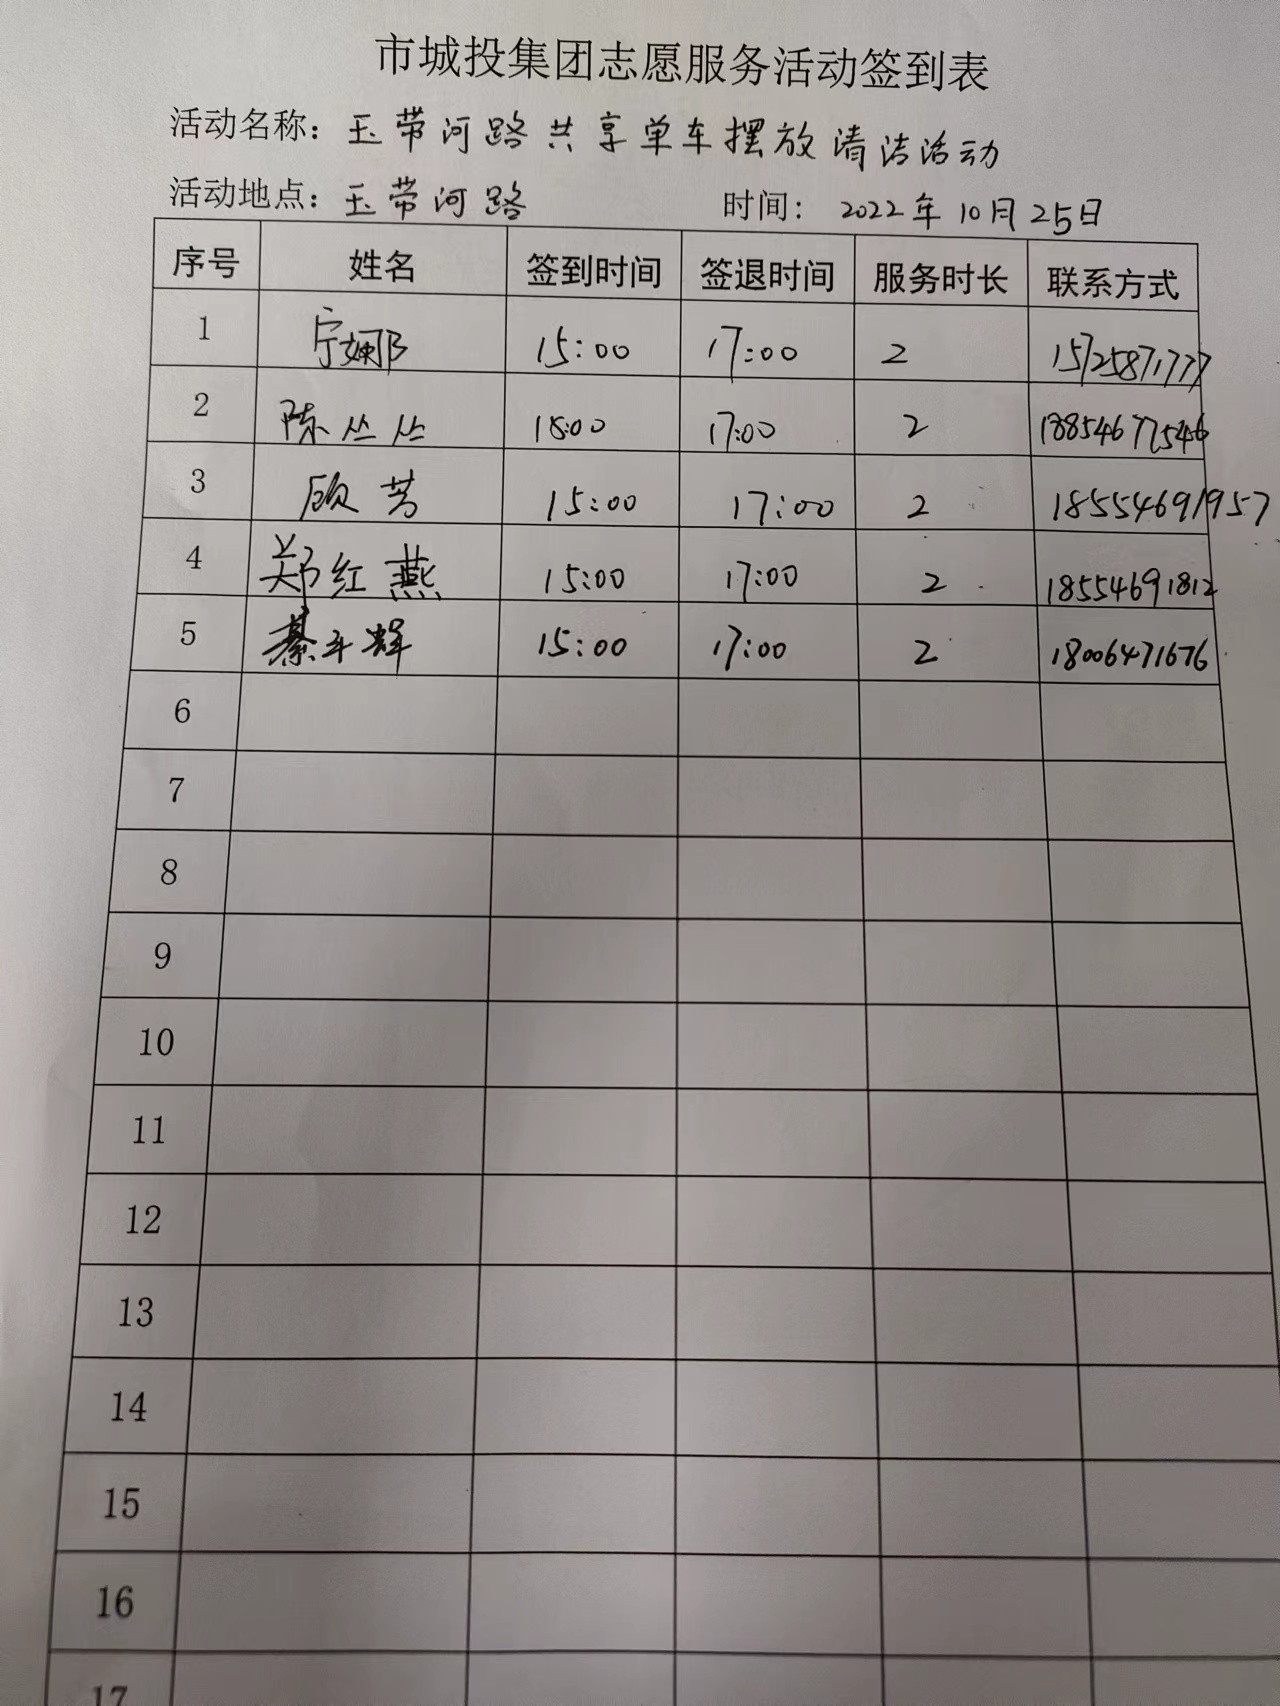 市城投集团志愿服务活动签到表
活动名称：玉带河路共享单车摆放清洁活动
活动地点：玉带河路 时间：2022年10月25日
序号 姓名 签到时间 签退时间 服务时长 联系方式
1 宁娜 15:00 17:00 2 15725871777
2 陈丛丛 15:00 17:00 2 18854677546
3 顾芳 15:00 17:00 2 18554691957
4 郑红燕 15:00 17:00 2 18554691812
5 綦 辉 15:00 17:00 2 18006471676
6
7
8
9
10
11
12
13
14
15
16
17